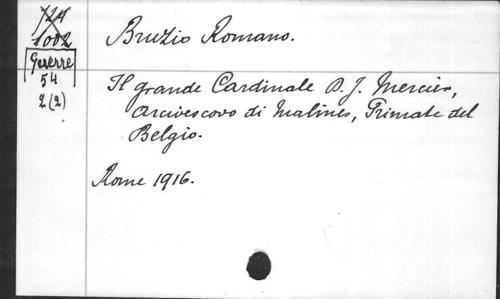 724
1002
Guerre
54
2 (2)
Bruzio Romano.
Il grande Cardinale D. J. Mercier,
Arcivescovo di Malines, Primate del
Belgio.
Rome 1916.